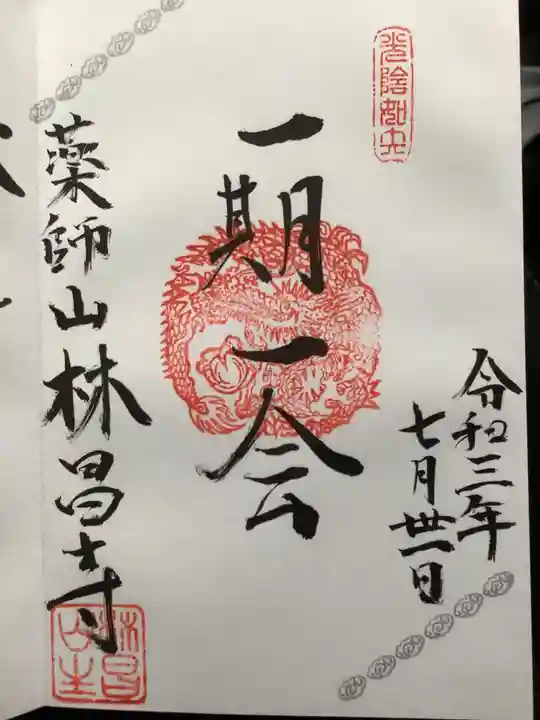 光陰如矢
令和三年
七月卅一日
一期一会
薬師山林昌寺
林昌
山主